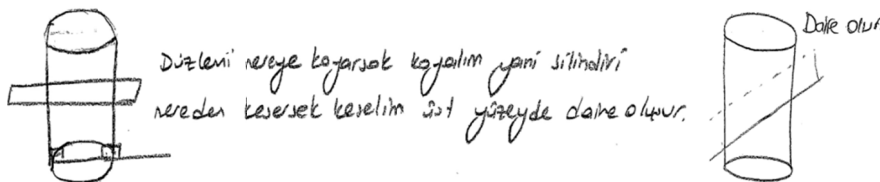 Düzlemi nereye koyarsak koyalım yani silindiri
nereden kesersek keselim üst yüzeyde daire oluşur.
Daire olur